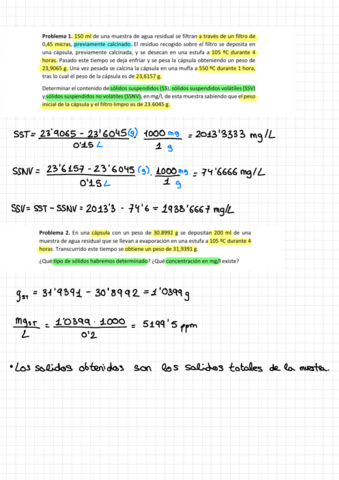 Problema 1. 150 ml de una muestra de agua residual se filtran a través de un filtro de
0,45 micras, previamente calcinado. El residuo recogido sobre el filtro se deposita en
una cápsula, previamente calcinada, y se desecan en una estufa a 105 ºC durante 4
horas. Pasado este tiempo se deja enfriar y se pesa la cápsula obteniendo un peso de
23,9065 g. Una vez pesada se calcina la cápsula en una mufla a 550 ºC durante 1 hora,
tras lo cual el peso de la cápsula es de 23,6157 g.
Determinar el contenido de sólidos suspendidos (SS), sólidos suspendidos volátiles (SSV)
y sólidos suspendidos no volátiles (SSNV), en mg/l, de esta muestra sabiendo que el peso
inicial de la cápsula y el filtro limpio es de 23.6045 g.
SST = 23'9065 - 23'6045 (g) / 0'15 L · 1000 mg / 1 g = 2013'3333 mg/L
SSNV = 23'6157 - 23'6045 (g) / 0'15 L · 1000 mg / 1 g = 74'6666 mg/L
SSV = SST - SSNV = 2013'3 - 74'6 = 1938'6667 mg/L
Problema 2. En una cápsula con un peso de 30.8992 g se depositan 200 ml de una
muestra de agua residual que se llevan a evaporación en una estufa a 105 ºC durante 4
horas. Transcurrido este tiempo se obtiene un peso de 31,9391 g.
¿Qué tipo de sólidos habremos determinado? ¿Qué concentración en mg/l existe?
gST = 31'9391 - 30'8992 = 1'0399 g
mgST / L = 1'0399 · 1000 / 0'2 = 5199'5 ppm
• Los solidos obtenidos son los solidos totales de la muestra.